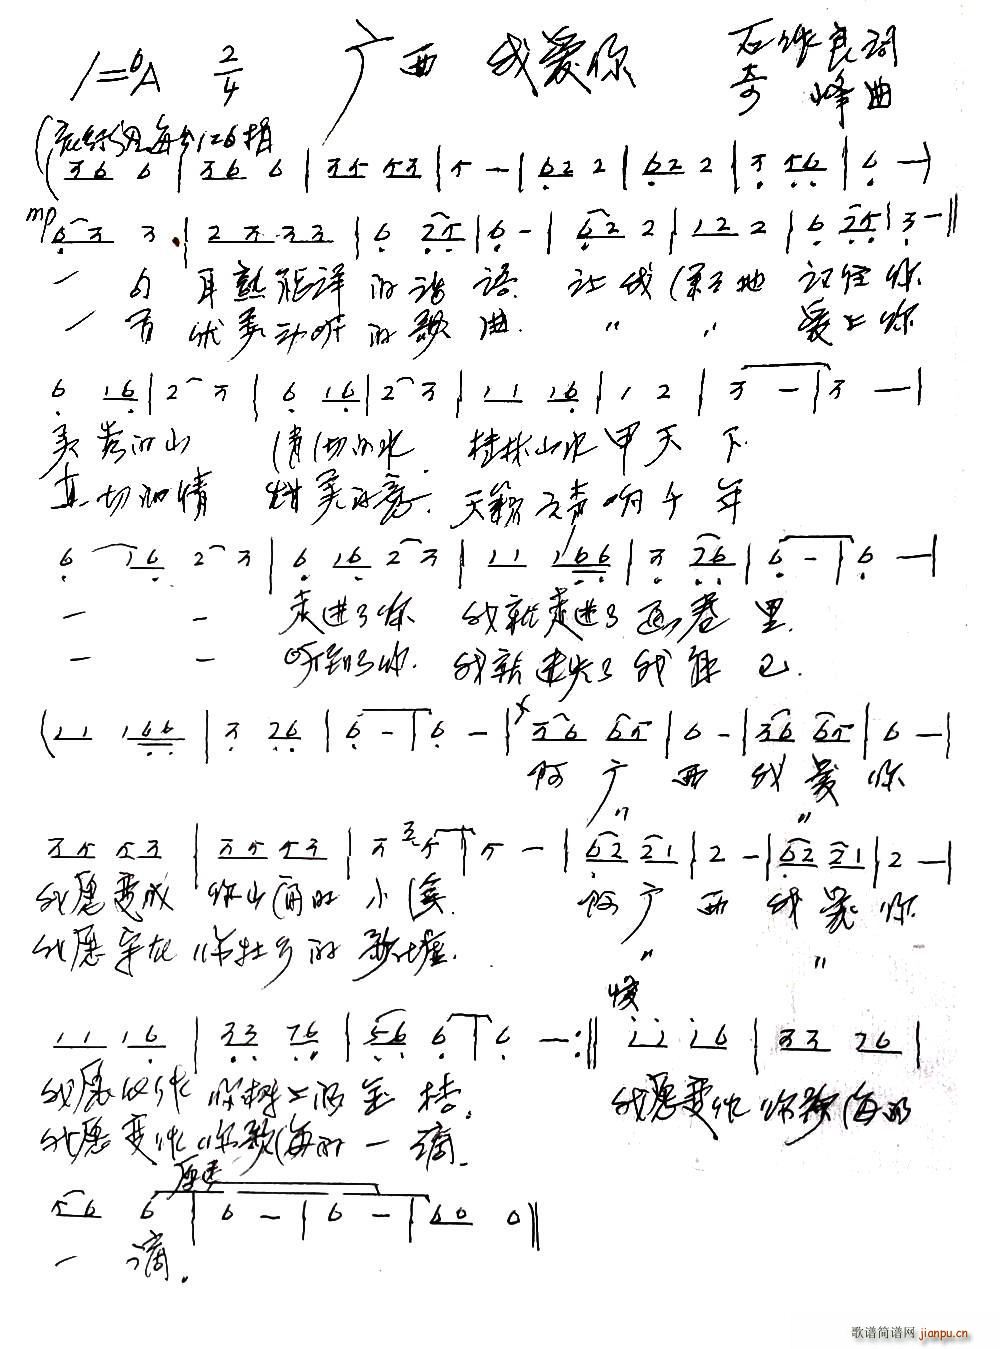 1=bA 2/4 广西 我爱你 石作良词
奇 峰曲
每分126拍
(36 6 | 36 6 | 35 53 | 5 — | 62 2 | 62 2 | 3 56 | 6 — )
mp 63 3 | 23 33 | 6 25 | 6 — | 62 2 | 12 2 | 6 25 | 3 — ‖
一句 耳熟能详的话语. 让我 地 记住你
一首 优美动听的歌曲. 〃 〃 爱上你
6 16 | 2 3 | 6 16 | 2 3 | 11 16 | 1 2 | 3 — | 3 — |
美 的山 的水. 桂林山水甲天下.
真切的情 甜美的音. 天籁之声响千年
6 16 2 3 | 6 16 2 3 | 11 166 | 3 76 | 6 — | 6 — |
— — 走进了你 我就走进了画卷里.
— — 听到了你. 我就迷失了我自己.
(11 166 | 3 26 | 6 — | 6 — | 36 65 | 6 — | 36 65 | 6 — |
啊 广西 我爱你
〃 〃
35 53 | 35 53 | 3 5 | 5 — | 62 21 | 2 — | 62 21 | 2 — |
我愿变成 你山间的小溪. 啊 广西 我爱你.
我愿 在你壮乡的歌墟. 〃 〃
慢
11 16 | 33 76 | 56 6 | 6 — :‖ 11 16 | 33 76 |
我愿 你树上的金桔. 我愿变作你歌海的
我愿变作你歌海的一滴.
原速
56 6 | 6 — | 6 — | 60 0 ‖
一 滴.
歌谱简谱网 jianpu.cn